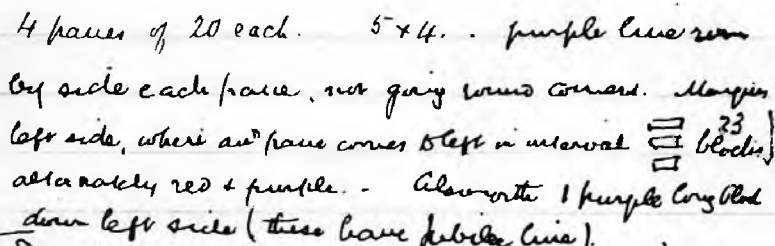 4 panes of 20 each. 5 x 4. . purple line runs
by side each pane, not going round corners. Margin
left side, where an pane comes to left in interval 23 blocks)
alternately red & purple. - Also with 1 purple long block
down left side (these have Jubilee line).